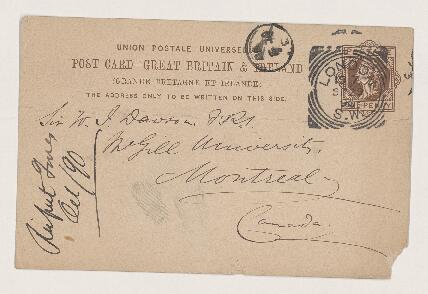 UNION POSTALE UNIVERSELLE
POST CARD GREAT BRITAIN & IRELAND
(GRANDE BRETAGNE ET IRLANDE)
THE ADDRESS ONLY TO BE WRITTEN ON THIS SIDE.
LONDON
S.W.
ONE PENNY
Sir W. J. Dawson F.R.S.
McGill University
Montreal
Canada
Oct/90